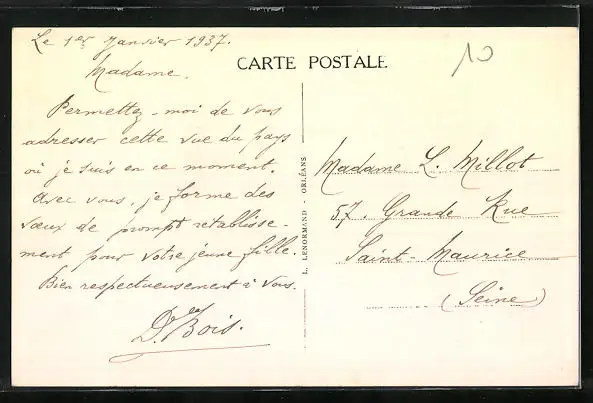 Le 1er Janvier 1937.
CARTE POSTALE
10
Madame.
Permettez-moi de vous
adresser cette vue du pays
où je suis en ce moment.
Avec vous, je forme des
vœux de prompt rétablisse-
ment pour votre jeune fille.
Bien respectueusement à vous.
Bois.
L. LENORMAND - ORLÉANS
Madame L. Millot
57, Grande Rue
Saint-Maurice
(Seine)